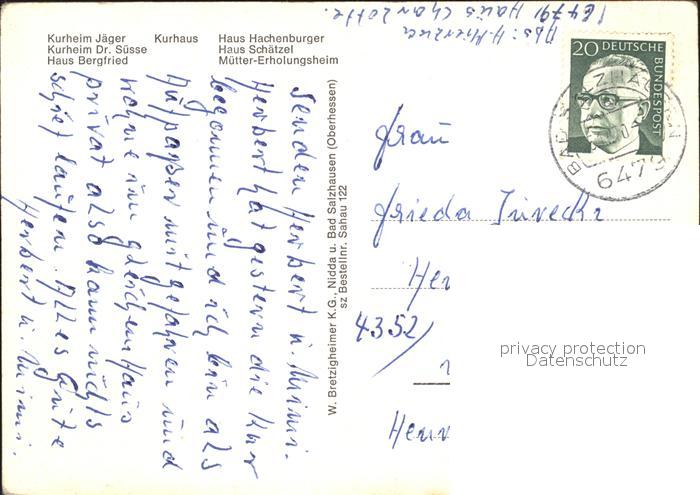 Kurheim Jäger Kurhaus Haus Hachenburger
Kurheim Dr. Süsse Haus Schätzel
Haus Bergfried Mütter-Erholungsheim
6479 Haus Charlotte.
20 DEUTSCHE BUNDESPOST
BAD SALZHAUSEN
6479
W. Bretzigheimer K.G., Nidda u. Bad Salzhausen (Oberhessen)
sz Bestellnr. Sahau 122
senden Herbert u. Mimi.
Herbert hat gestern die Kur
begonnen und ich bin als
Aufpasser mitgefahren und
wohne im gleichen Haus
privat also kann nichts
schief laufen. Alles Gute
Herbert u. Mimi.
Frau
Frieda
Her
4352
Herr
privacy protection
Datenschutz